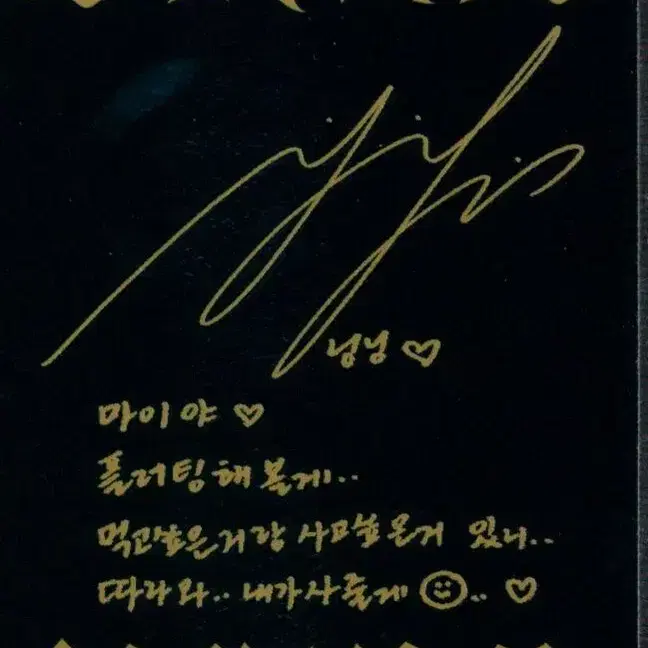 닝닝 ♡
마이야 ♡
플러팅해 볼게..
먹고싶은거랑 사고싶은거 있니..
따라와.. 내가 사줄게 ☺.. ♡